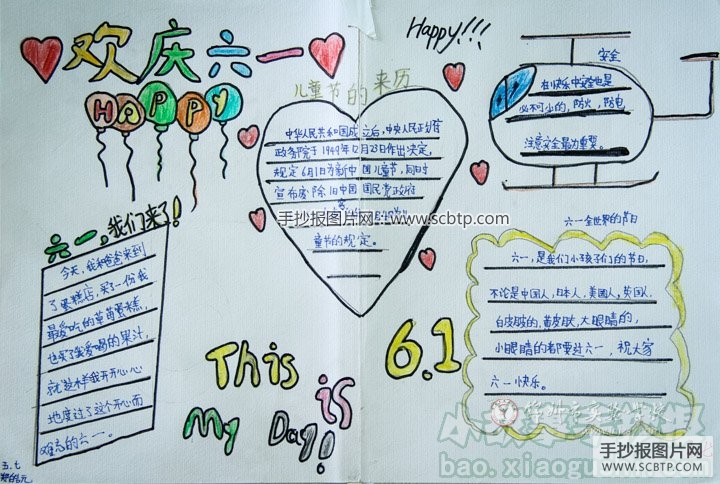 欢庆六一
HAPPY
Happy!!!
儿童节的来历
中华人民共和国成立后,中央人民政府
政务院于1949年12月23日作出决定,
规定6月1日为新中国儿童节,同时
宣布废除旧中国国民党政府
童节的规定。
手抄报图片网:www.scbtp.com
安全
在快乐中安全也是
必不可少的,防火,防电
注意安全最为重要。
六一,我们来了!
今天,我和爸爸来到
了蛋糕店,买了一份我
最爱吃的草莓蛋糕,
也买了我爱喝的果汁,
就这样我开开心心
地度过了这个开心而
难忘的六一。
六一全世界的节日
六一,是我们小孩子们的节日,
不论是中国人,日本人,美国人,英国人,
白皮肤的,黄皮肤,大眼睛的,
小眼睛的都要过六一,祝大家
六一快乐。
This is
My Day!
6.1
五.七
bao.xiaogu
手抄报图片网
WWW.SCBTP.COM